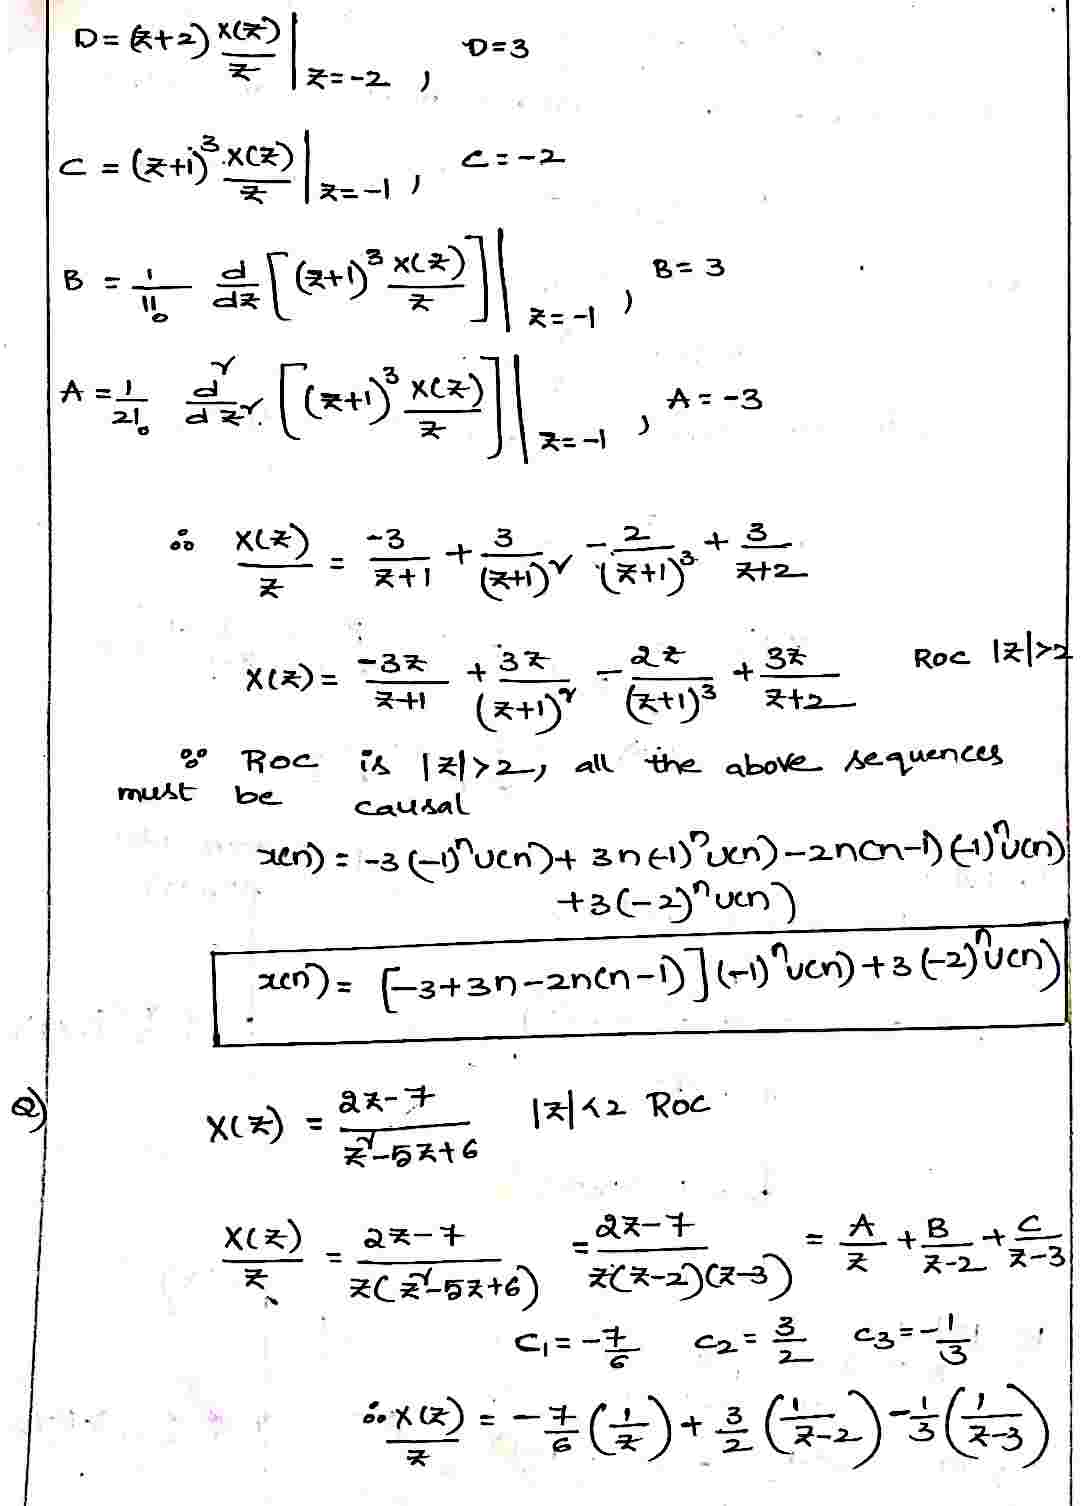 D = (z+2) X(z)/z |z=-2 , D=3
C = (z+1)^3 X(z)/z |z=-1 , C=-2
B = 1/1! d/dz [(z+1)^3 X(z)/z] |z=-1 , B=3
A = 1/2! d²/dz² [(z+1)^3 X(z)/z] |z=-1 , A=-3
∴ X(z)/z = -3/(z+1) + 3/(z+1)² - 2/(z+1)^3 + 3/(z+2)
X(z) = -3z/(z+1) + 3z/(z+1)² - 2z/(z+1)^3 + 3z/(z+2) ROC |z|>2
∵ ROC is |z|>2, all the above sequences
must be causal
x(n) = -3(-1)^n u(n) + 3n(-1)^n u(n) - 2n(n-1)(-1)^n u(n)
+3(-2)^n u(n)
x(n) = [-3+3n-2n(n-1)](-1)^n u(n) + 3(-2)^n u(n)
Q) X(z) = (2z-7)/(z²-5z+6) |z|<2 ROC
X(z)/z = (2z-7)/(z(z²-5z+6)) = (2z-7)/(z(z-2)(z-3)) = A/z + B/(z-2) + C/(z-3)
C₁ = -7/6 C₂ = 3/2 C₃ = -1/3
∴ X(z)/z = -7/6 (1/z) + 3/2 (1/(z-2)) - 1/3 (1/(z-3))